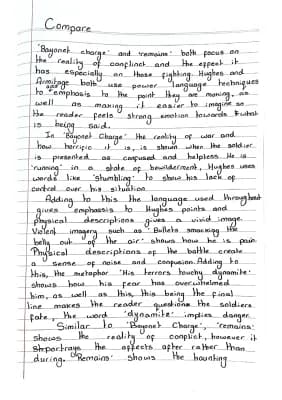 Compare
'Bayonet charge' and 'remains' both focus on
the reality of conflict and the effect it
has especially on those fighting. Hughes and
Armitage both use power language techniques
to emphasis to the point they are making, as
well as making it easier to imagine so
the reader feels strong emotion towards what
is being said.
In 'Bayonet Charge' the reality of war and
how horrific it is, is shown when the soldier
is presented as confused and helpless. He is
'running' in a state of bewilderment, Hughes uses
words like 'Stumbling' to show his lack of
control over his situation.
Adding to this the language used throughout
gives emphassis to Hughes points and
physical descriptions gives a vivid image.
Violent imagery such as 'Bullets smacking the
belly out of the air' shows how he is pain
Physical descriptions of the battle create
a sense of noise and confusion. Adding to
this, the metaphor 'His terrors touchy dynamite'
shows how his fear has overwhelmed
him, as well as this, this being the final
line makes the reader question the soldiers
fate, the word 'dynamite' implies danger.
Similar to 'Bayonet Charge', 'remains'
shows the reality of conflict, however it
portrays the affects after rather than
during. 'Remains' shows the haunting